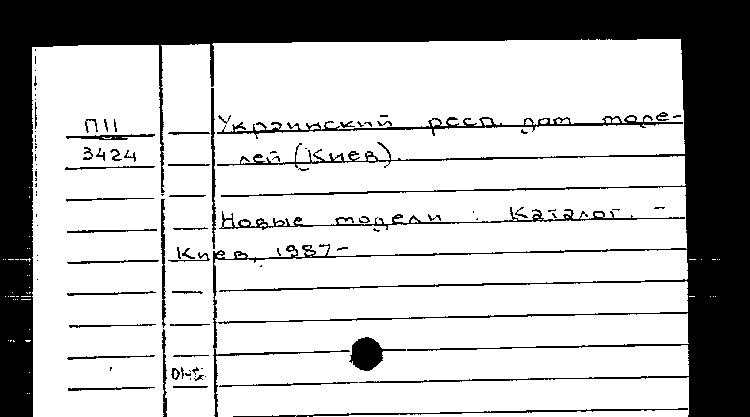 П11 Украинский респ. дом моде-
3424 лей (Киев).
Новые модели : Каталог. -
Киев, 1987-